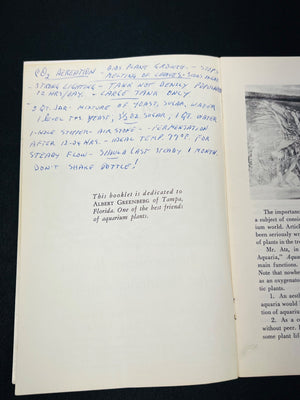 CO2 AERATION - AIDS PLANT GROWTH - STOPS
MELTING OF LEAVES
- STRONG LIGHTING - TANK NOT DENSLY POPULATED
12 HRS/DAY. - LARGE TANK ONLY
- 2 QT. JAR - MIXTURE OF YEAST, SUGAR, WATER
1 LEVEL TBS YEAST, 3½ OZ SUGAR, 1 QT. WATER
1-HOLE STOPPER - AIR STONE - - FERMENTATION
AFTER 12-24 HRS. - IDEAL TEMP. 77° F. FOR
STEADY FLOW - SHOULD LAST STEADY 1 MONTH.
DON'T SHAKE BOTTLE!
This booklet is dedicated to
ALBERT GREENBERG of Tampa,
Florida. One of the best friends
of aquarium plants.
The importan
a subject of consi
ium world. Articl
been seriously wr
of plants in the tr
Mr. Atz, in
Aquaria," Aqua
main functions.
Note that nowhe
as an oxygenato
tic plants.
1. An aest
aquaria would
tion of aquariu
2. As a co
without peer. F
some plant lif